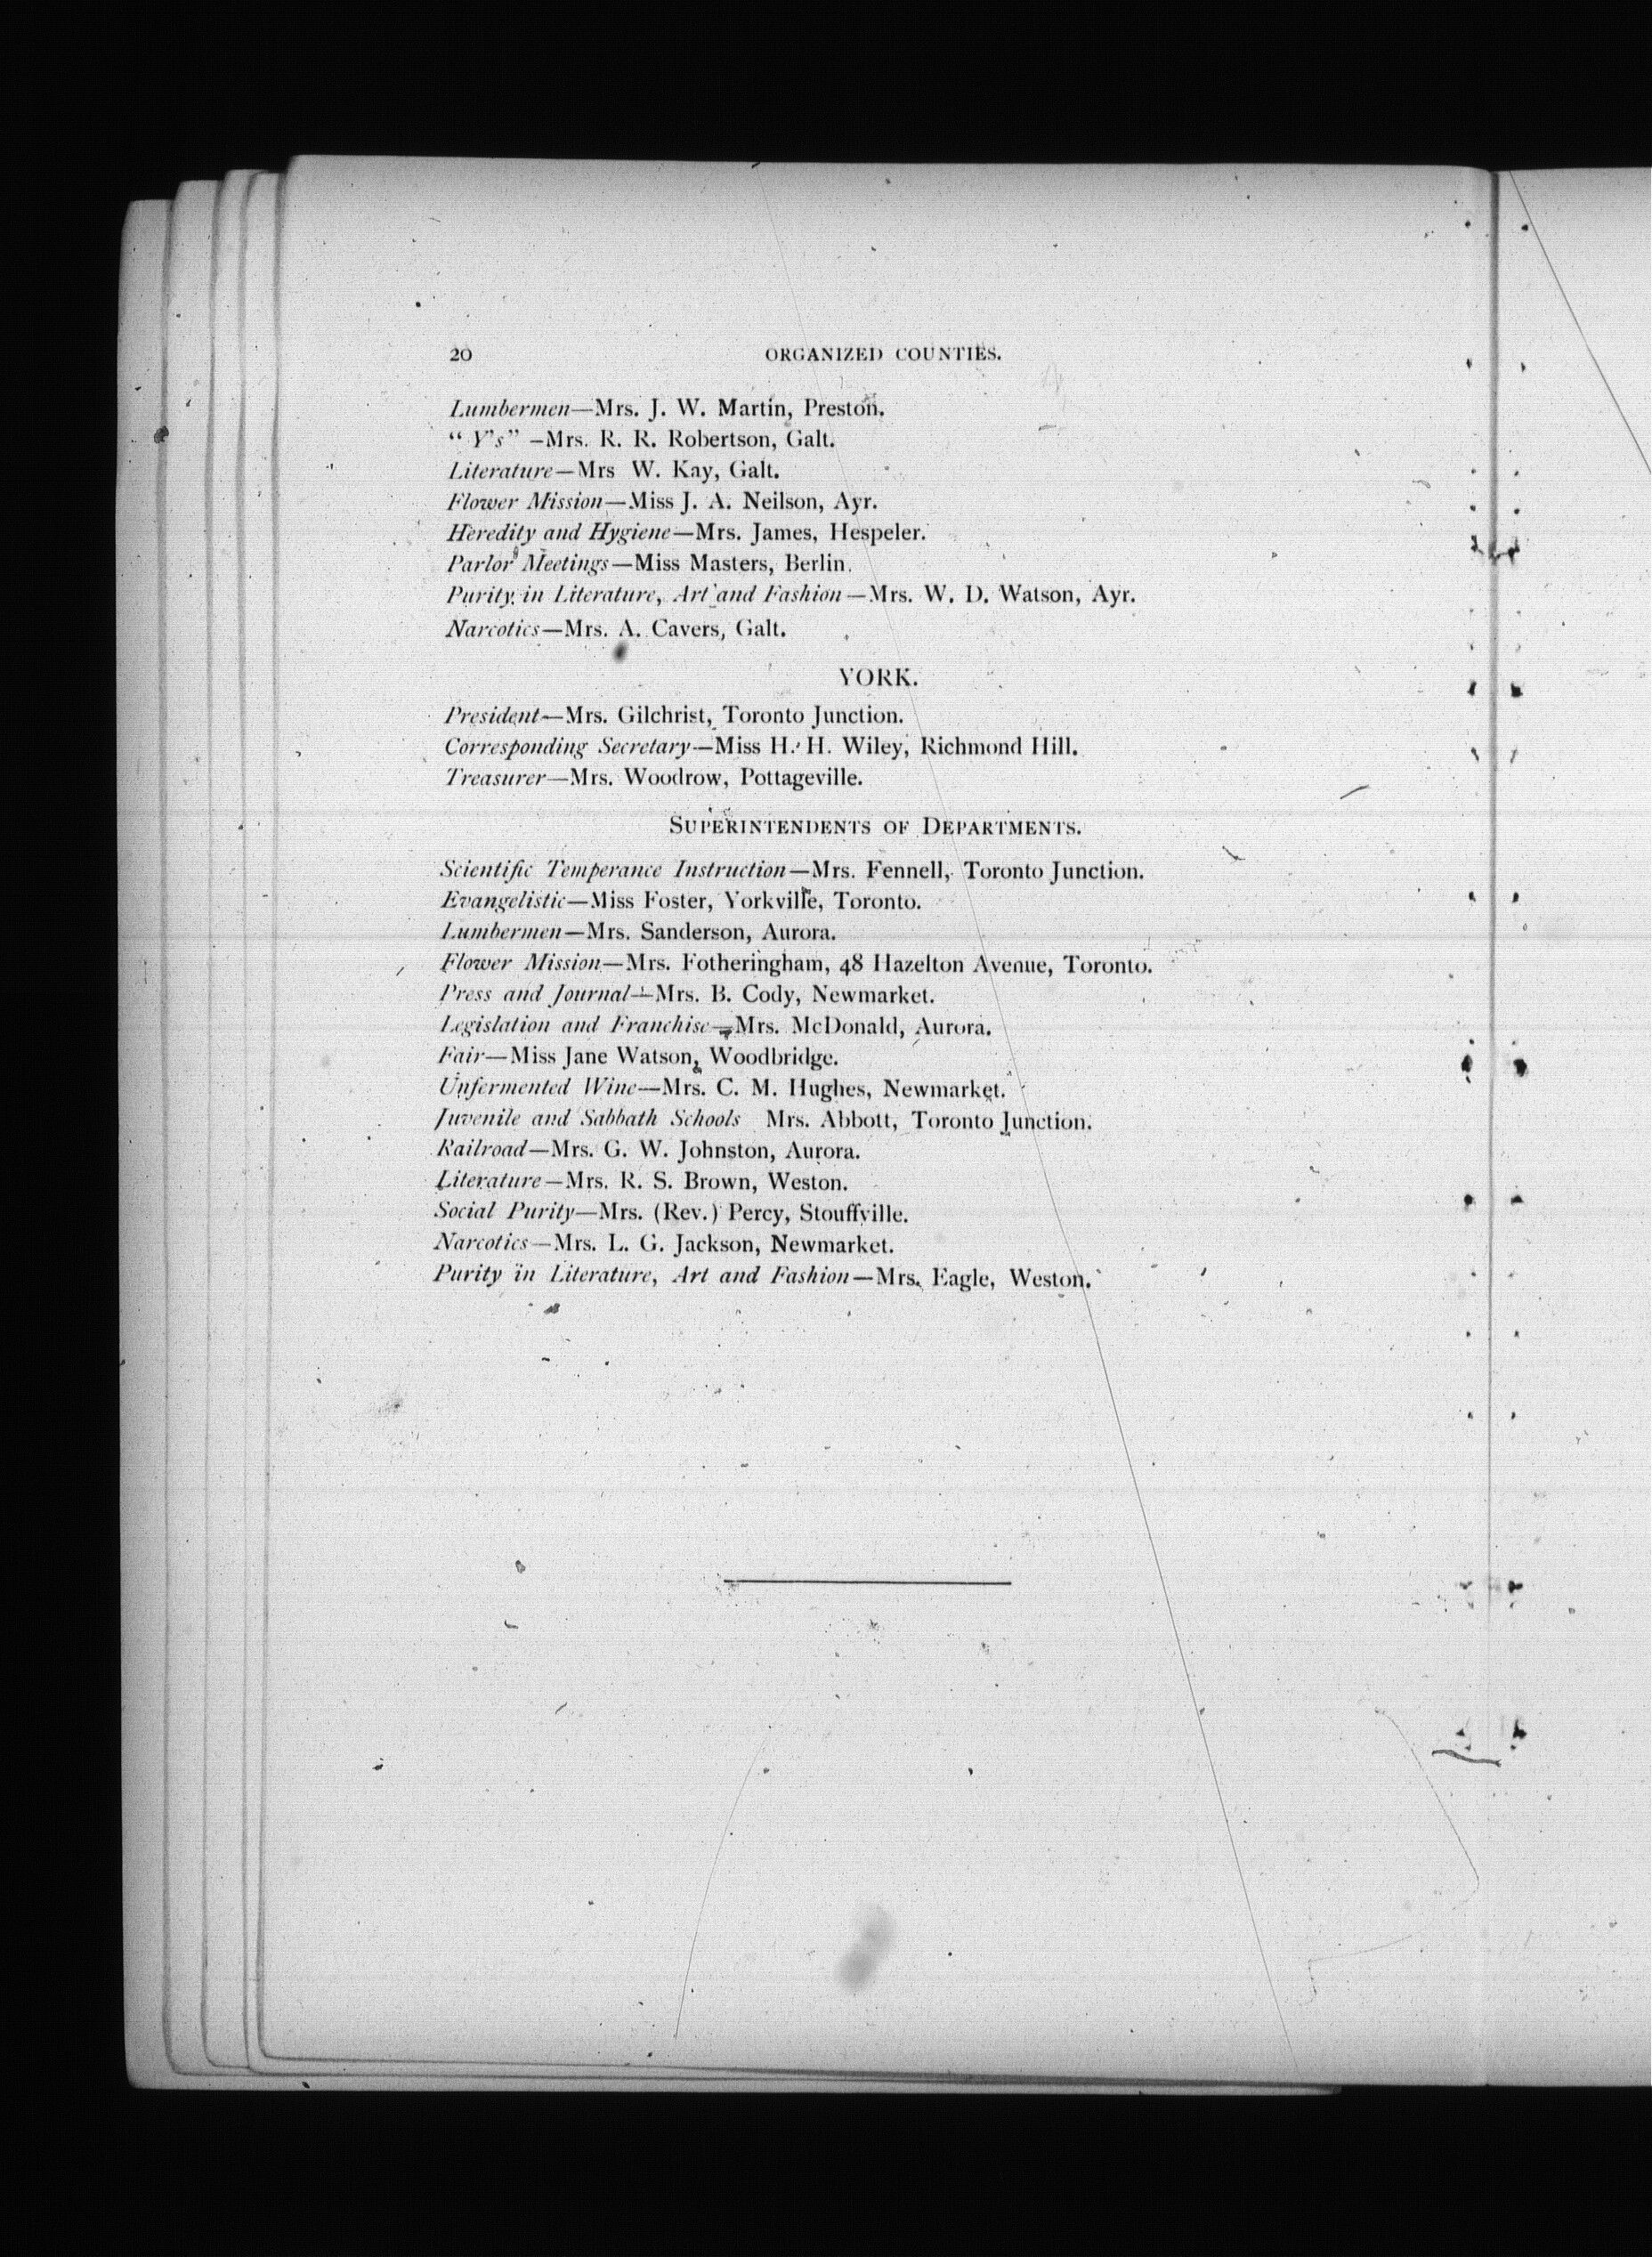 20 ORGANIZED COUNTIES.
Lumbermen—Mrs. J. W. Martin, Preston.
“ Y's” –Mrs. R. R. Robertson, Galt.
Literature—Mrs W. Kay, Galt.
Flower Mission—Miss J. A. Neilson, Ayr.
Heredity and Hygiene—Mrs. James, Hespeler.
Parlor Meetings—Miss Masters, Berlin.
Purity in Literature, Art and Fashion—Mrs. W. D. Watson, Ayr.
Narcotics—Mrs. A. Cavers, Galt.
YORK.
President—Mrs. Gilchrist, Toronto Junction.
Corresponding Secretary—Miss H. H. Wiley, Richmond Hill.
Treasurer—Mrs. Woodrow, Pottageville.
SUPERINTENDENTS OF DEPARTMENTS.
Scientific Temperance Instruction—Mrs. Fennell, Toronto Junction.
Evangelistic—Miss Foster, Yorkville, Toronto.
Lumbermen—Mrs. Sanderson, Aurora.
Flower Mission—Mrs. Fotheringham, 48 Hazelton Avenue, Toronto.
Press and Journal—Mrs. B. Cody, Newmarket.
Legislation and Franchise—Mrs. McDonald, Aurora.
Fair—Miss Jane Watson, Woodbridge.
Unfermented Wine—Mrs. C. M. Hughes, Newmarket.
Juvenile and Sabbath Schools Mrs. Abbott, Toronto Junction.
Railroad—Mrs. G. W. Johnston, Aurora.
Literature—Mrs. R. S. Brown, Weston.
Social Purity—Mrs. (Rev.) Percy, Stouffville.
Narcotics—Mrs. L. G. Jackson, Newmarket.
Purity in Literature, Art and Fashion—Mrs. Eagle, Weston.